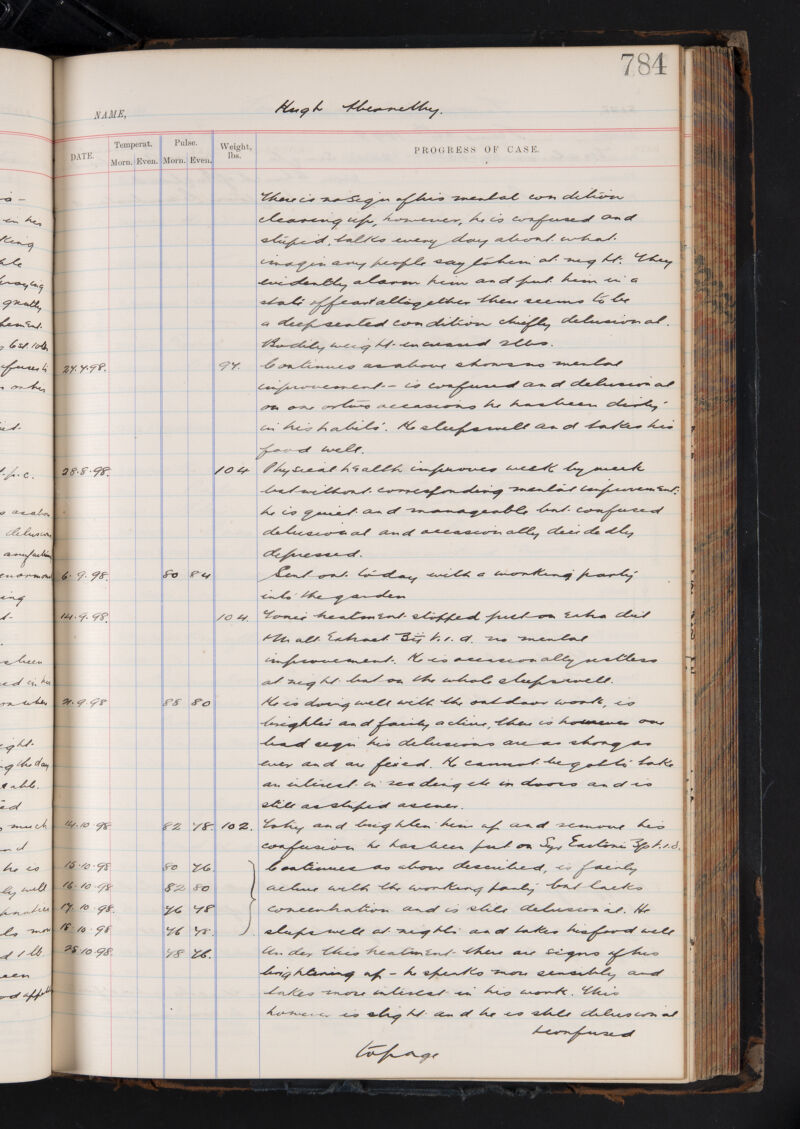 784
NAME, Hugh Abernethy.
DATE. Temperat. Morn. Even. Pulse. Morn. Even. Weight, lbs. PROGRESS OF CASE.
There is no sign of his mental condition
clearing up, however, he is confused and
stupid, talks every day about what
imaginary people say to him at night. They
evidently alarm him and put him in a
state of fear altogether there seems to be
a deep seated condition chiefly delusional.
Bodily weight increased 2lbs.
97. Continues as above shows no mental
improvement - is confused and delusional
on one or two occasions he has been dirty
in his habits. He sleeps well and takes his
food well.
28.8.98. 104 Physical health improves week by week
but without corresponding mental improvement.
he is quiet and manageable but confused
delusional and occasionally decidedly
depressed.
6.9.98. 80 84 Sent out today with a working party
into the garden
14.9.98. 104. Tonic treatment stopped put on extra diet
+ Malt Extract t.i.d. no mental
improvement. He is occasionally restless
at night but on the whole sleeps well.
21.9.98 88 80 He is doing well with the outdoor work, is
brighter and fairly active, there is however one
bad sign his delusions are as strong as
ever and are fixed. He cannot be got to take
an interest in reading etc indoors and is
still as stupid as ever.
14.10.98 82 78. 102. To try and brighten him up and remove his
confusion he has been put on Syr Eastoni t.i.d.
15.10.98 80 76. Continues as above described, is fairly
16.10.98 82 80 active with the working party but lacks
17.10.98. 76 78 concentration and is still delusional. He
18.10.98 76 78. sleeps well at night and takes his food well
28.10.98. 78 76. Under this treatment there are signs of his
brightening up - he speaks more sensibly and
takes more interest in his work. This
however is slight and he is still delusional
& confused
to page